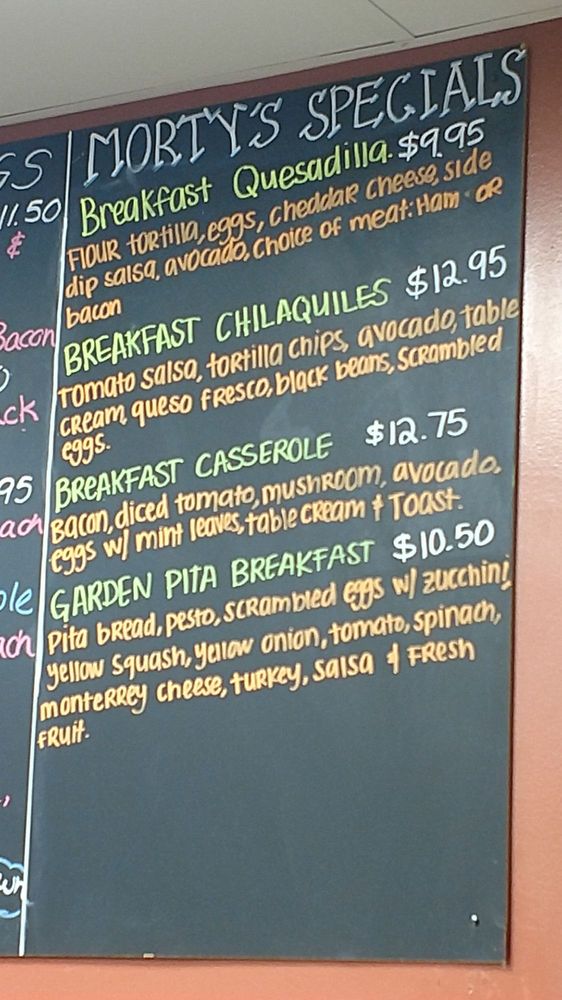 GS
MORTY'S SPECIALS
11.50
&
Bacon
95
Breakfast Quesadilla $9.95
Flour tortilla, eggs, cheddar cheese, side
dip salsa, avocado, choice of meat: Ham OR
bacon
BREAKFAST CHILAQUILES $12.95
Tomato salsa, tortilla chips, avocado, table
cream, queso fresco, black beans, scrambled
eggs.
BREAKFAST CASSEROLE $12.75
Bacon, diced tomato, mushroom, avocado,
eggs w/ mint leaves, table cream & Toast.
GARDEN PITA BREAKFAST $10.50
Pita bread, pesto, scrambled eggs w/ zucchini,
yellow squash, yellow onion, tomato, spinach,
monterrey cheese, turkey, salsa & Fresh
fruit.